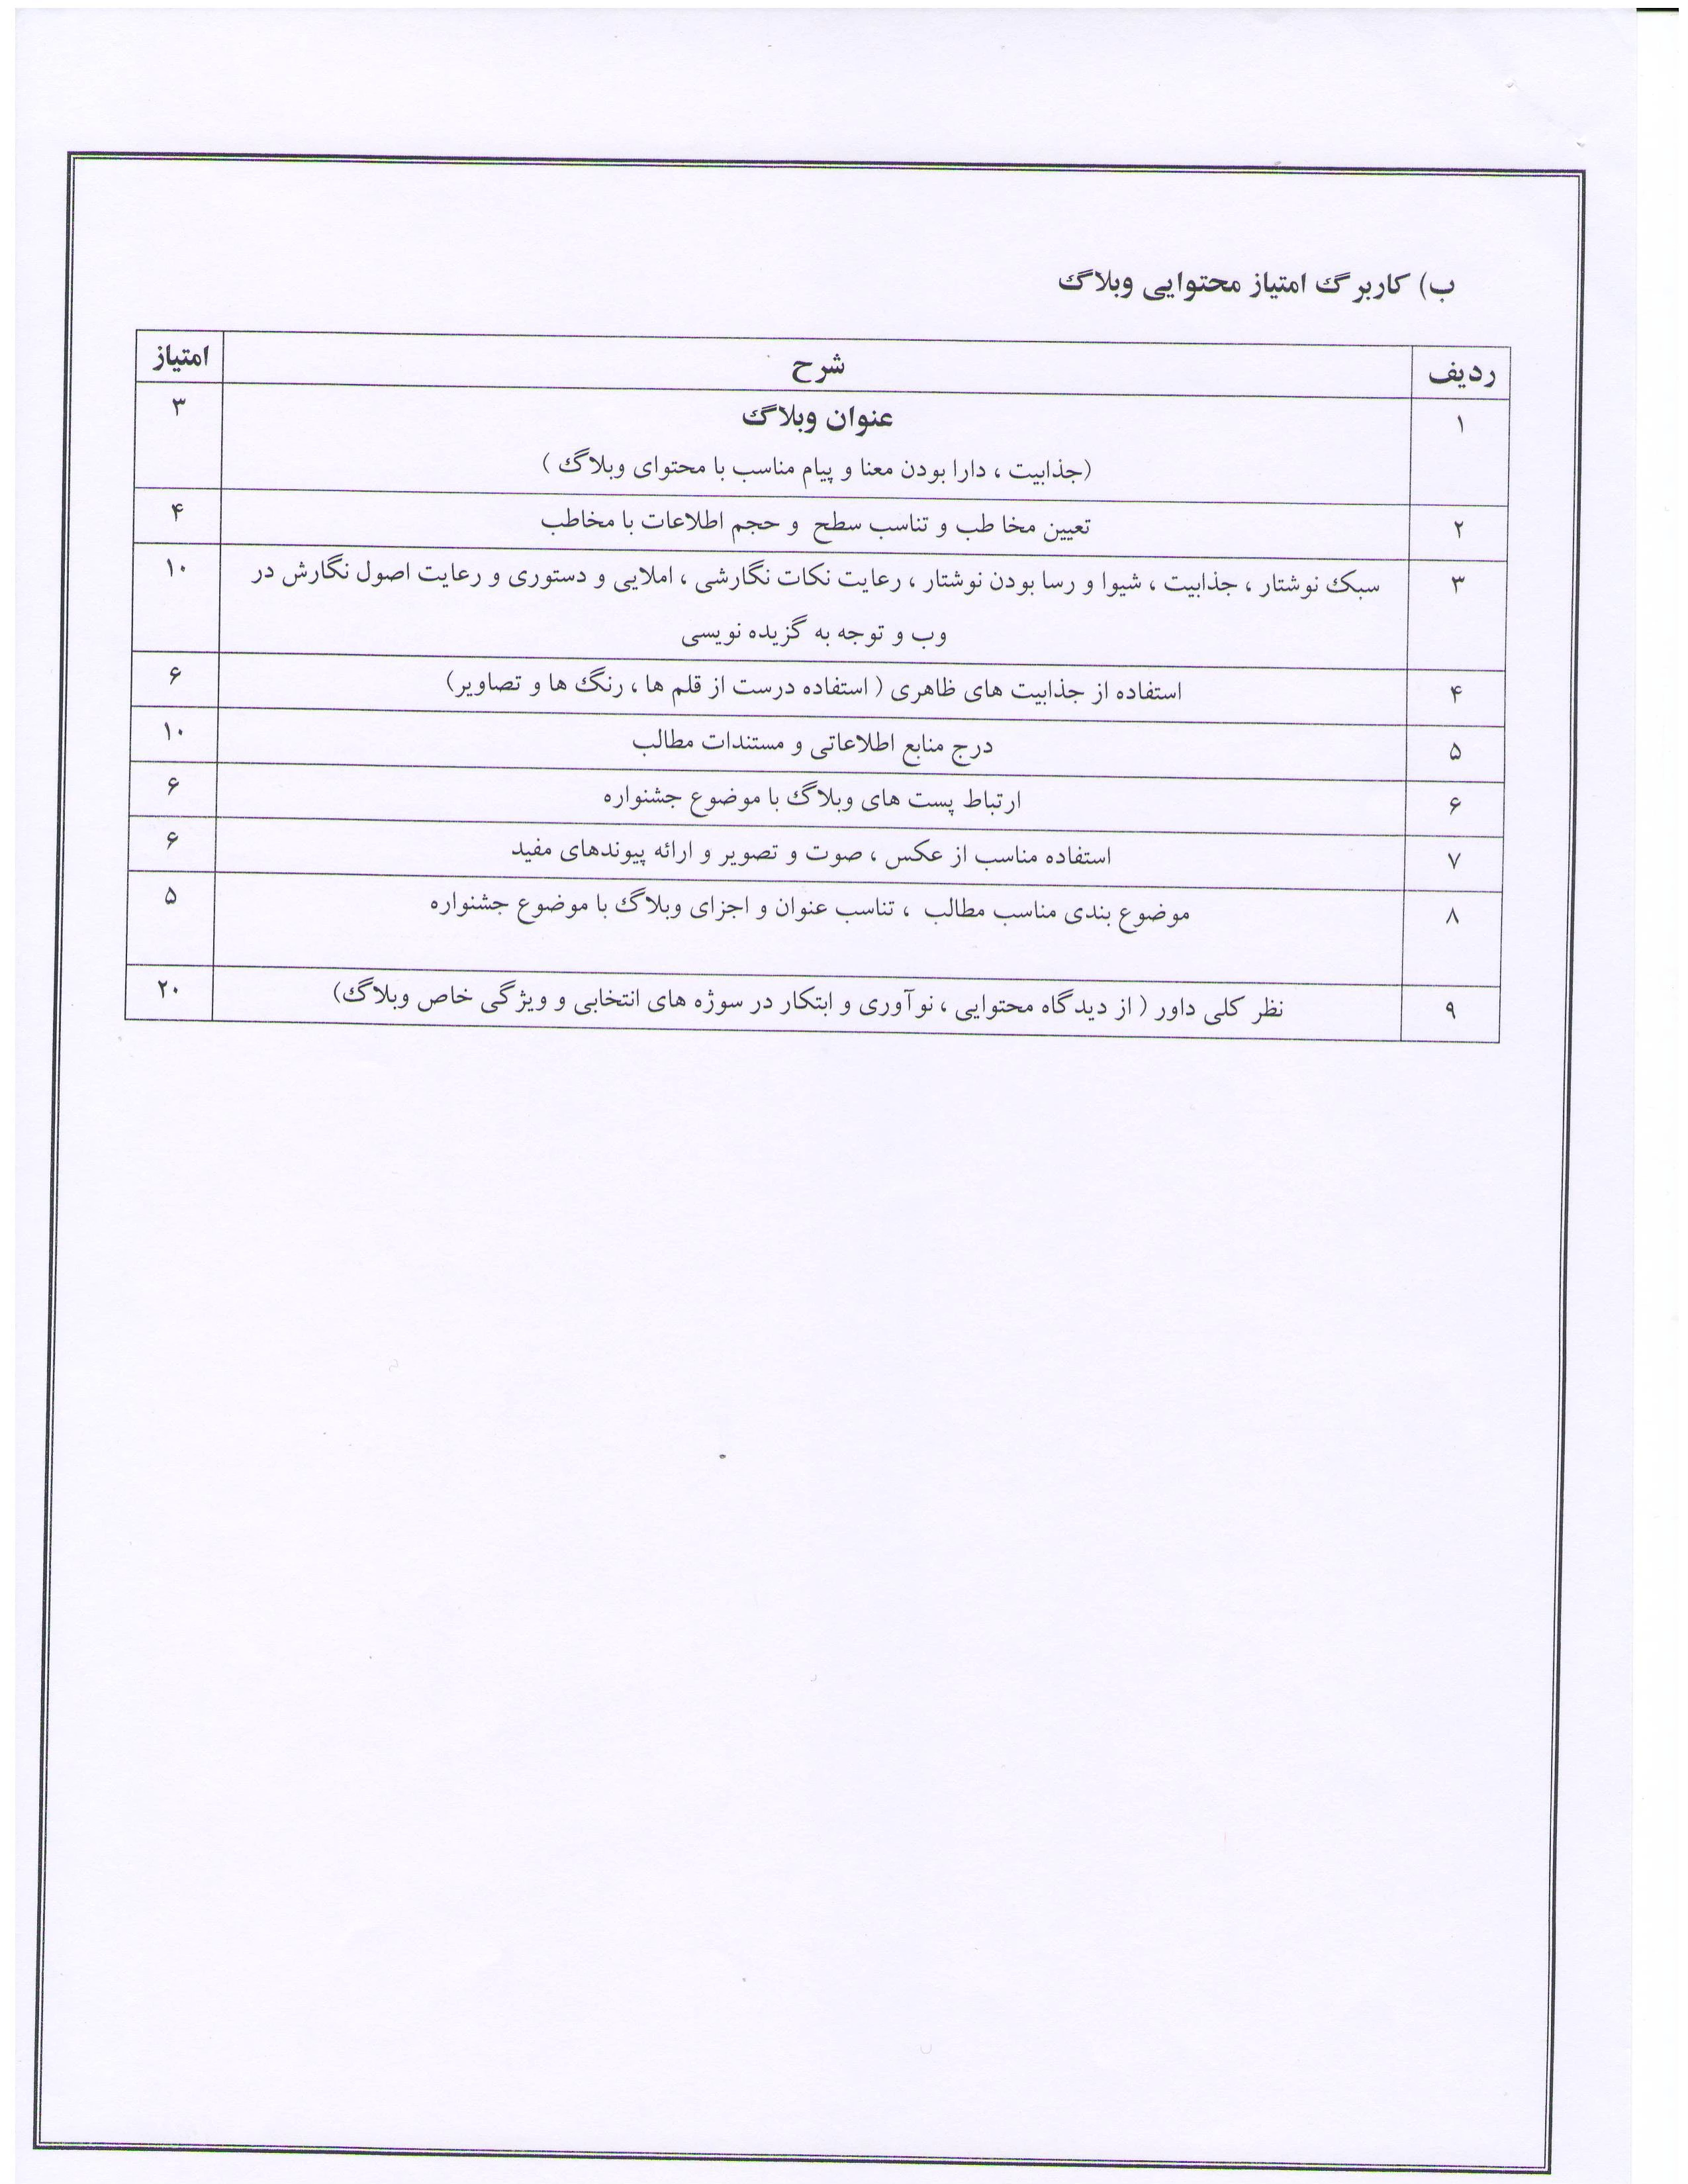 ب) کاربرگ امتیاز محتوایی وبلاگ
ردیف شرح امتیاز
۱ عنوان وبلاگ ۳
(جذابیت ، دارا بودن معنا و پیام مناسب با محتوای وبلاگ )
۲ تعیین مخا طب و تناسب سطح و حجم اطلاعات با مخاطب ۴
۳ سبک نوشتار ، جذابیت ، شیوا و رسا بودن نوشتار ، رعایت نکات نگارشی ، املایی و دستوری و رعایت اصول نگارش در ۱۰
وب و توجه به گزیده نویسی
۴ استفاده از جذابیت های ظاهری ( استفاده درست از قلم ها ، رنگ ها و تصاویر) ۶
۵ درج منابع اطلاعاتی و مستندات مطالب ۱۰
۶ ارتباط پست های وبلاگ با موضوع جشنواره ۶
۷ استفاده مناسب از عکس ، صوت و تصویر و ارائه پیوندهای مفید ۶
۸ موضوع بندی مناسب مطالب ، تناسب عنوان و اجزای وبلاگ با موضوع جشنواره ۵
۹ نظر کلی داور ( از دیدگاه محتوایی ، نوآوری و ابتکار در سوژه های انتخابی و ویژگی خاص وبلاگ) ۲۰